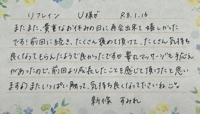 リフレイン U様が R8.1.16
またまた、貴重なお休みの日に再会出来て嬉しかった
です！前回に続き、たくさん褒めて頂けて、たくさん気持ち
良くなってもらえたようで良かったですが 責れマッサージと手に入
があったので、前回より成長したことを感じて頂けたと思い
ますので またいっぱい触って、気持ち良くなって下さいね
新條 すみれ